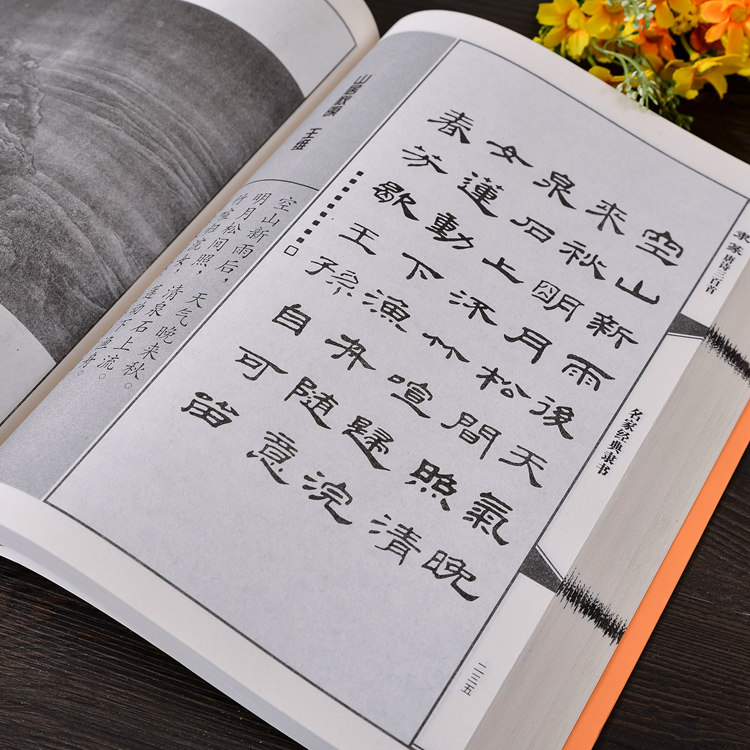 隶篆唐诗三百首
名家经典隶书
二三五
空山新雨後天氣晚
來秋明月松間照清
泉石上流竹喧歸浣
女蓮動下漁舟隨意
春芳歇王孫自可留
山居秋暝 王维
空山新雨后，天气晚来秋。
明月松间照，清泉石上流。
竹喧归浣女，莲动下渔舟。